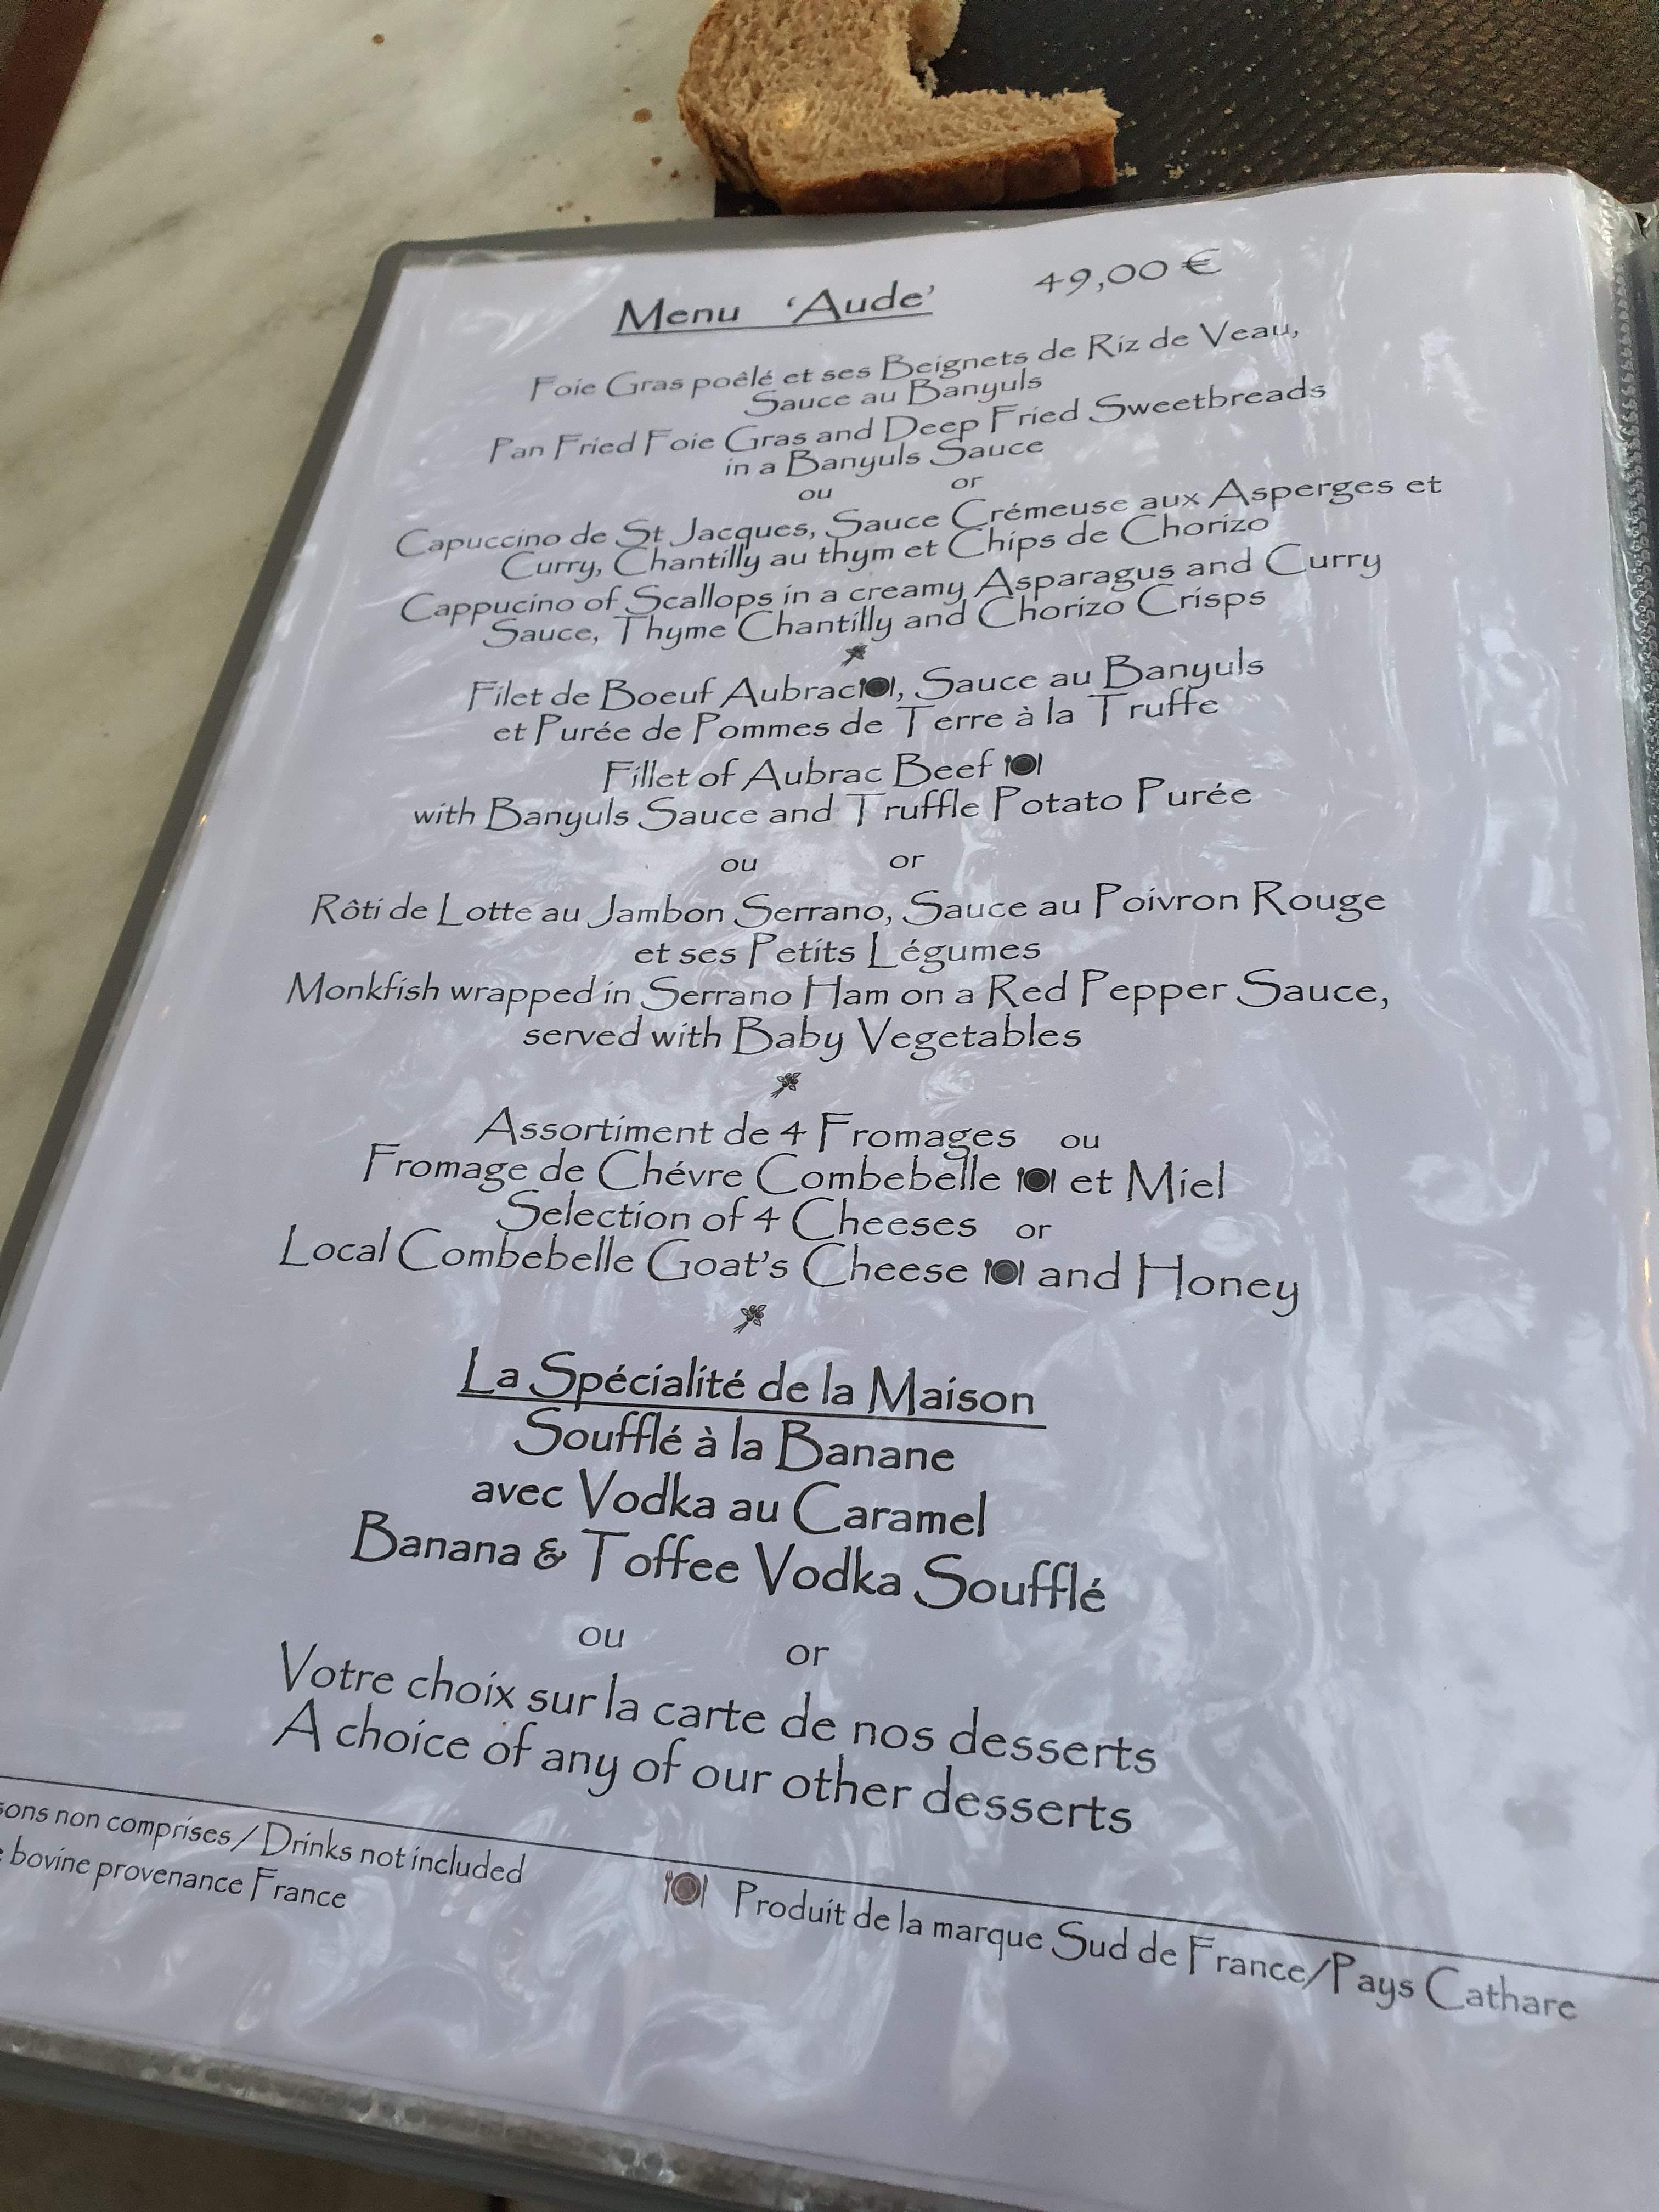 Menu 'Aude' 49,00 €
Foie Gras poêlé et ses Beignets de Riz de Veau,
Sauce au Banyuls
Pan Fried Foie Gras and Deep Fried Sweetbreads
in a Banyuls Sauce
ou or
Capuccino de St Jacques, Sauce Crémeuse aux Asperges et
Curry, Chantilly au thym et Chips de Chorizo
Cappucino of Scallops in a creamy Asparagus and Curry
Sauce, Thyme Chantilly and Chorizo Crisps
Filet de Boeuf Aubrac, Sauce au Banyuls
et Purée de Pommes de Terre à la Truffe
Fillet of Aubrac Beef
with Banyuls Sauce and Truffle Potato Purée
ou or
Rôti de Lotte au Jambon Serrano, Sauce au Poivron Rouge
et ses Petits Légumes
Monkfish wrapped in Serrano Ham on a Red Pepper Sauce,
served with Baby Vegetables
Assortiment de 4 Fromages ou
Fromage de Chévre Combebelle et Miel
Selection of 4 Cheeses or
Local Combebelle Goat's Cheese and Honey
La Spécialité de la Maison
Soufflé à la Banane
avec Vodka au Caramel
Banana & Toffee Vodka Soufflé
ou or
Votre choix sur la carte de nos desserts
A choice of any of our other desserts
sons non comprises / Drinks not included
bovine provenance France
Produit de la marque Sud de France/Pays Cathare